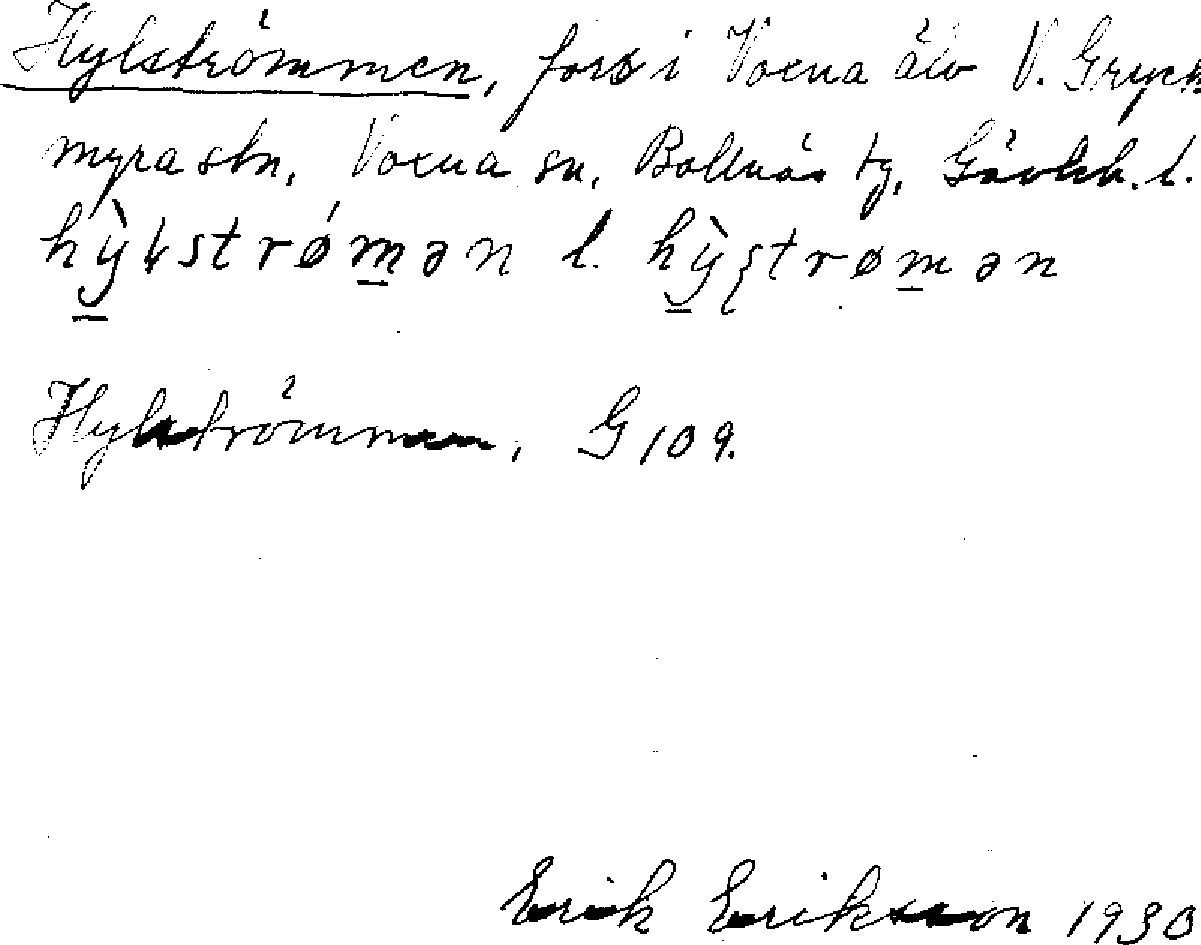 Hylströmmen, fors i Voxna älv V. Gryck
myra stn, Voxna sn, Bollnäs tg, Gävleb. l.
hỳłstrǿmən l. hỳʂtrømən
Hylströmmen, G 109.
Erik Eriksson 1930